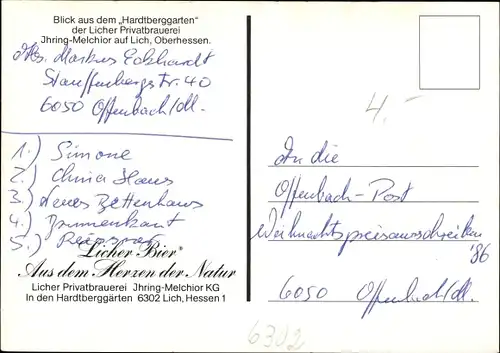 Blick aus dem „Hardtberggarten“
der Licher Privatbrauerei
Jhring-Melchior auf Lich, Oberhessen.
Abs. Markus Eckhardt
Stauffenbergstr. 40
6050 Offenbach/M.
1.) Simone
2.) China Haus
3.) Neues Bettenhaus
4.)
5.)
Licher Bier®
Aus dem Herzen der Natur
Licher Privatbrauerei Jhring-Melchior KG
In den Hardtberggärten 6302 Lich, Hessen 1
4.-
An die
Offenbach-Post
Weihnachtspreisausschreiben
'86
6050 Offenbach/M.
6302